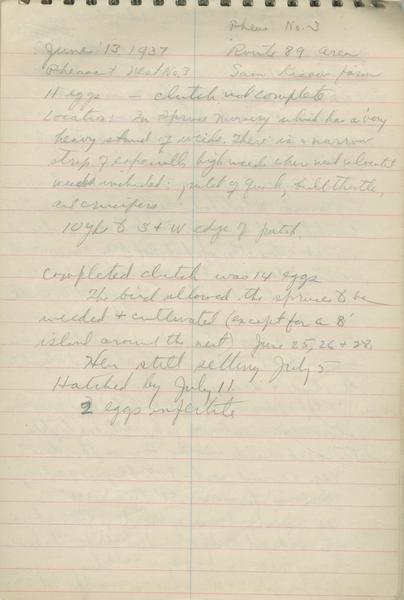 Pheas No. 3
June 13, 1937 Route 89 area
Pheasant Nest No. 3 Sam farm
11 eggs - clutch not complete
Location: In spruce nursery which has a very
heavy stand of weeds. There is a narrow
strip of especially high weeds where nest is located
weeds included: of quack, bull thistle,
and crucifers
10 yds to S + W edge of patch.
Completed clutch was 14 eggs
The bird allowed the spruces to be
weeded + cultivated (except for a 8'
island around the nest) June 25, 26 + 28.
Hen still setting July 5
Hatched by July 11
2 eggs infertile